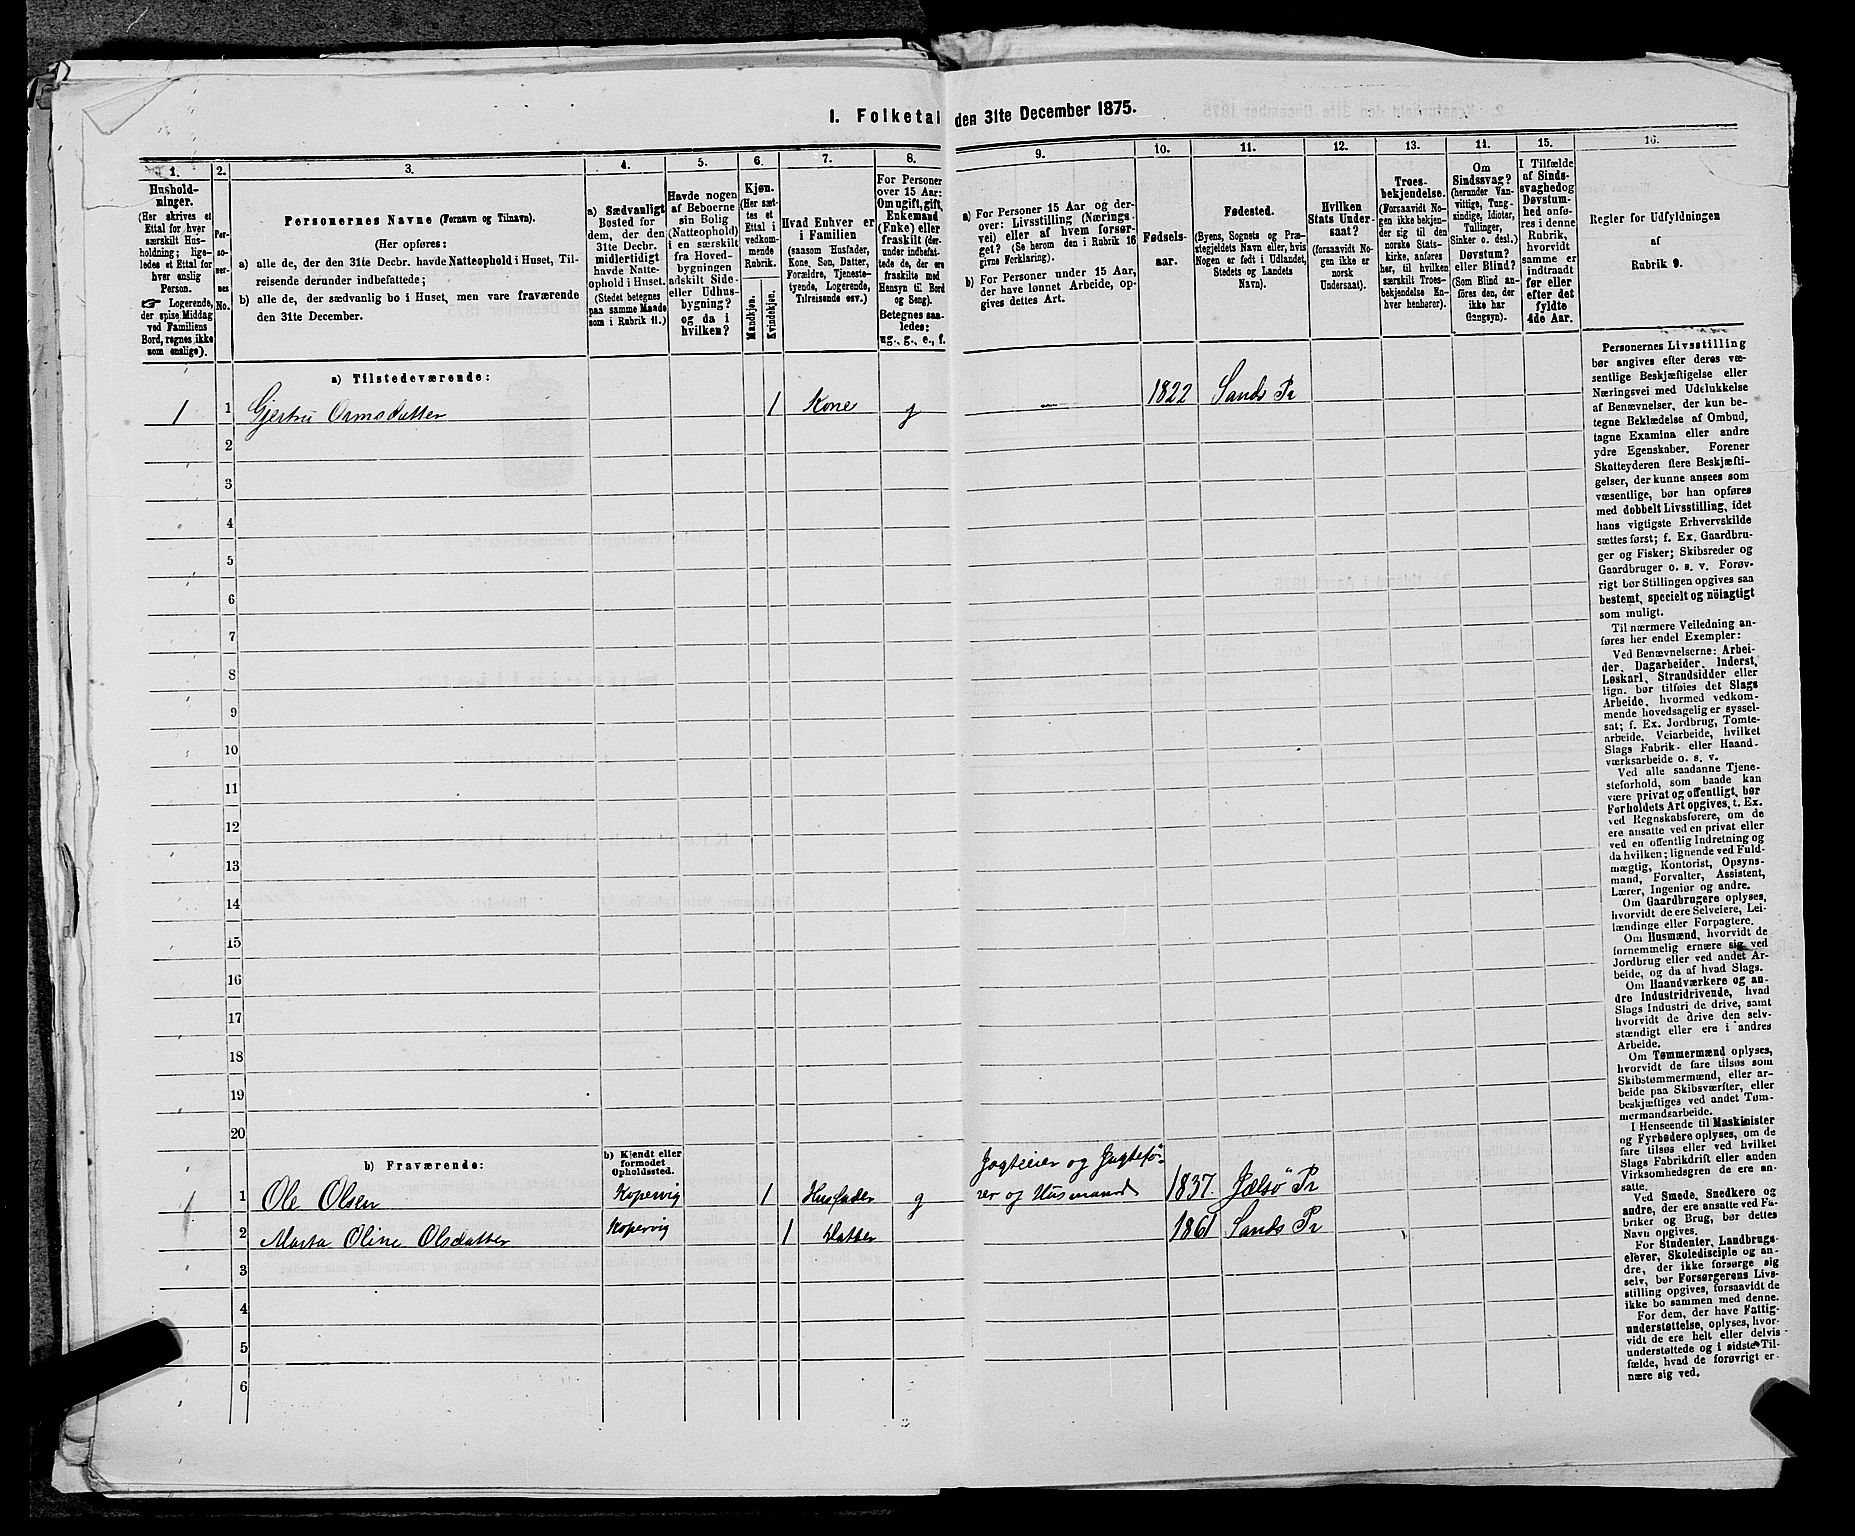 1. Folketal den 31te December 1875.
1. 2. 3. 4. 5. 6. 7. 8. 9. 10. 11. 12. 13. 14. 15. 16.
Hushold-
ninger.
(Her skrives et
Ettal for hver
særskilt Hus-
holdning; lige-
ledes et Ettal for
hver enslig
Person.
☞ Logerende,
der spise Middag
ved Familiens
Bord, regnes ikke
som enslige).
Per-
so-
ner-
nes
No.
Personernes Navne (Fornavn og Tilnavn).
(Her opføres:
a) alle de, der den 31te Decbr. havde Natteophold i Huset, Til-
reisende derunder indbefattede;
b) alle de, der sædvanlig bo i Huset, men vare fraværende
den 31te December.
a) Sædvanligt
Bosted for
dem, der den
31te Decbr.
midlertidigt
havde Natte-
ophold i Huset.
(Stedet betegnes
paa samme Maade
som i Rubrik 11.)
Havde nogen
af Beboerne
sin Bolig
(Natteophold)
i en særskilt
fra Hoved-
bygningen
adskilt Side-
eller Udhus-
bygning?
og da i
hvilken?
Kjøn.
(Her sæt-
tes et
Ettal i
vedkom-
mende
Rubrik.
Mandkjøn.
Kvindekjøn.
Hvad Enhver er
i Familien
(saasom Husfader,
Kone, Søn, Datter,
Forældre, Tjeneste-
tyende, Logerende,
Tilreisende osv.)
For Personer
over 15 Aar:
Om ugift, gift,
Enkemand
(Enke) eller
fraskilt (der-
under indbefat-
tede de, der ere
fraskilte med
Hensyn til Bord
og Seng).
Betegnes saa-
ledes:
ug., g., e., f.
a) For Personer 15 Aar og der-
over: Livsstilling (Nærings-
vei) eller af hvem forsør-
get? (Se herom den i Rubrik 16
givne Forklaring).
b) For Personer under 15 Aar,
der have lønnet Arbeide, op-
gives dettes Art.
Fødsels-
aar.
Fødested.
(Byens, Sognets og Præ-
stegjeldets Navn eller, hvis
Nogen er født i Udlandet,
Stedets og Landets
Navn).
Hvilken
Stats Under-
saat?
(forsaavidt No-
gen ikke er
norsk
Undersaat).
Troes-
bekjendelse.
(Forsaavidt No-
gen ikke bekjen-
der sig til den
norske Stats-
kirke, anføres
her, til hvilken
særskilt Troes-
bekjendelse En-
hver henhører).
Om
Sindssvag?
(herunder Van-
vittige, Tung-
sindige, Idioter,
Tullinger,
Sinker o. desl.)
Døvstum?
eller Blind?
(Som Blind an-
føres den, der
ikke har
Gangsyn).
I Tilfælde
af Sinds-
svaghed og
Døvstum-
hed anfø-
res i denne
Rubrik,
hvorvidt
samme er
indtraadt
før eller
efter det
fyldte
4de Aar.
Regler for Udfyldningen
af
Rubrik 9.
a) Tilstedeværende:
1 1 Gjertru Ormsdatter 1 Kone g 1822 Sands Pr
2
3
4
5
6
7
8
9
10
11
12
13
14
15
16
17
18
19
20
b) Fraværende:
b) Kjendt eller
formodet
Opholdssted.
Jagteeier og Jagtefø-
1 1 Ole Olsen Kopervig 1 Husfader g rer og Husmand 1837. Jelsö Pr
2 Marta Oline Olsdatter Kopervig 1 Datter 1861 Sands Pr
3
4
5
6
Personernes Livsstilling
bør angives efter deres væ-
sentlige Beskjæftigelse eller
Næringsvei med Udelukkelse
af Benævnelser, der kun be-
tegne Beklædelse af Ombud,
tagne Examina eller andre
ydre Egenskaber. Forener
Skatteyderen flere Beskjæfti-
gelser, der kunne ansees som
væsentlige, bør han opføres
med dobbelt Livsstilling, idet
hans vigtigste Erhvervskilde
sættes først; f. Ex. Gaardbru-
ger og Fisker; Skibsreder og
Gaardbruger o. s. v. Forøv-
rigt bør Stillingen opgives saa
bestemt, specielt og nöiagtigt
som muligt.
Til nærmere Veiledning an-
føres her endel Exempler:
Ved Benævnelserne: Arbei-
der, Dagarbeider, Inderst,
Løskarl, Strandsidder eller
lign. bør tilføies det Slags
Arbeide, hvormed vedkom-
mende hovedsagelig er syssel-
sat; f. Ex. Jordbrug, Tomte-
arbeide, Veiarbeide, hvilket
Slags Fabrik- eller Haand-
værksarbeide o. s. v.
Ved alle saadanne Tjene-
steforhold, som baade kan
være privat og offentligt, bør
Forholdets Art opgives, t. Ex.
ved Regnskabsførere, om de
ere ansatte ved en privat eller
ved en offentlig Indretning og
da hvilken; lignende ved Fuld-
mægtig, Kontorist, Opsyns-
mand, Forvalter, Assistent,
Lærer, Ingeniør og andre.
Om Gaardbrugere oplyses,
hvorvidt de ere Selveiere, Lei-
lændinge eller Forpagtere.
Om Husmænd, hvorvidt de
fornemmelig ernære sig ved
Jordbrug eller ved andet Ar-
beide, og da af hvad Slags.
Om Haandværkere og an-
dre Industridrivende, hvad
Slags Industri de drive, samt
hvorvidt de drive den selv-
stændigt eller ere i andres
Arbeide.
Om Tømmermænd oplyses,
hvorvidt de fare tilsøs som
Skibstømmermænd, eller ar-
beide paa Skibsværfter, eller
beskjæftiges ved andet Tøm-
mermandsarbeide.
I Henseende til Maskinister
og Fyrbødere oplyses, om de
fare tilsøs eller ved hvilket
Slags Fabrikdrift eller anden
Virksomhedsgren de ere an-
satte.
Ved Smede, Snedkere og
andre, der ere ansatte ved Fa-
briker og Brug, bør dettes
Navn opgives.
For Studenter, Landbrugs-
elever, Skoledisciple og an-
dre, der ikke forsørge sig
selv, bør Forsørgerens Livs-
stilling opgives, forsaavidt de
ikke bo sammen med denne.
For dem, der have Fattig-
understøttelse, oplyses, hvor-
vidt de ere helt eller delvis
understøttede og i sidste Til-
fælde, hvad de forøvrigt er-
nære sig ved.